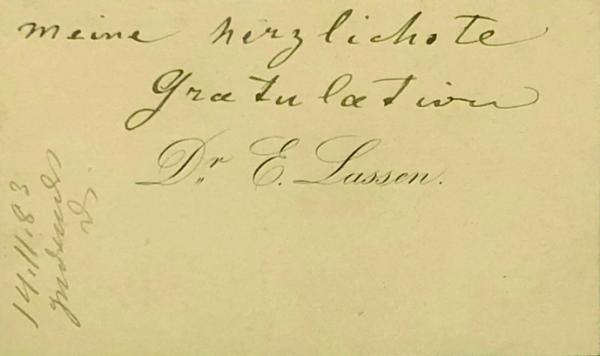 meine herzlichste
Gratulation
Dr. E. Lassen.
14.11.83